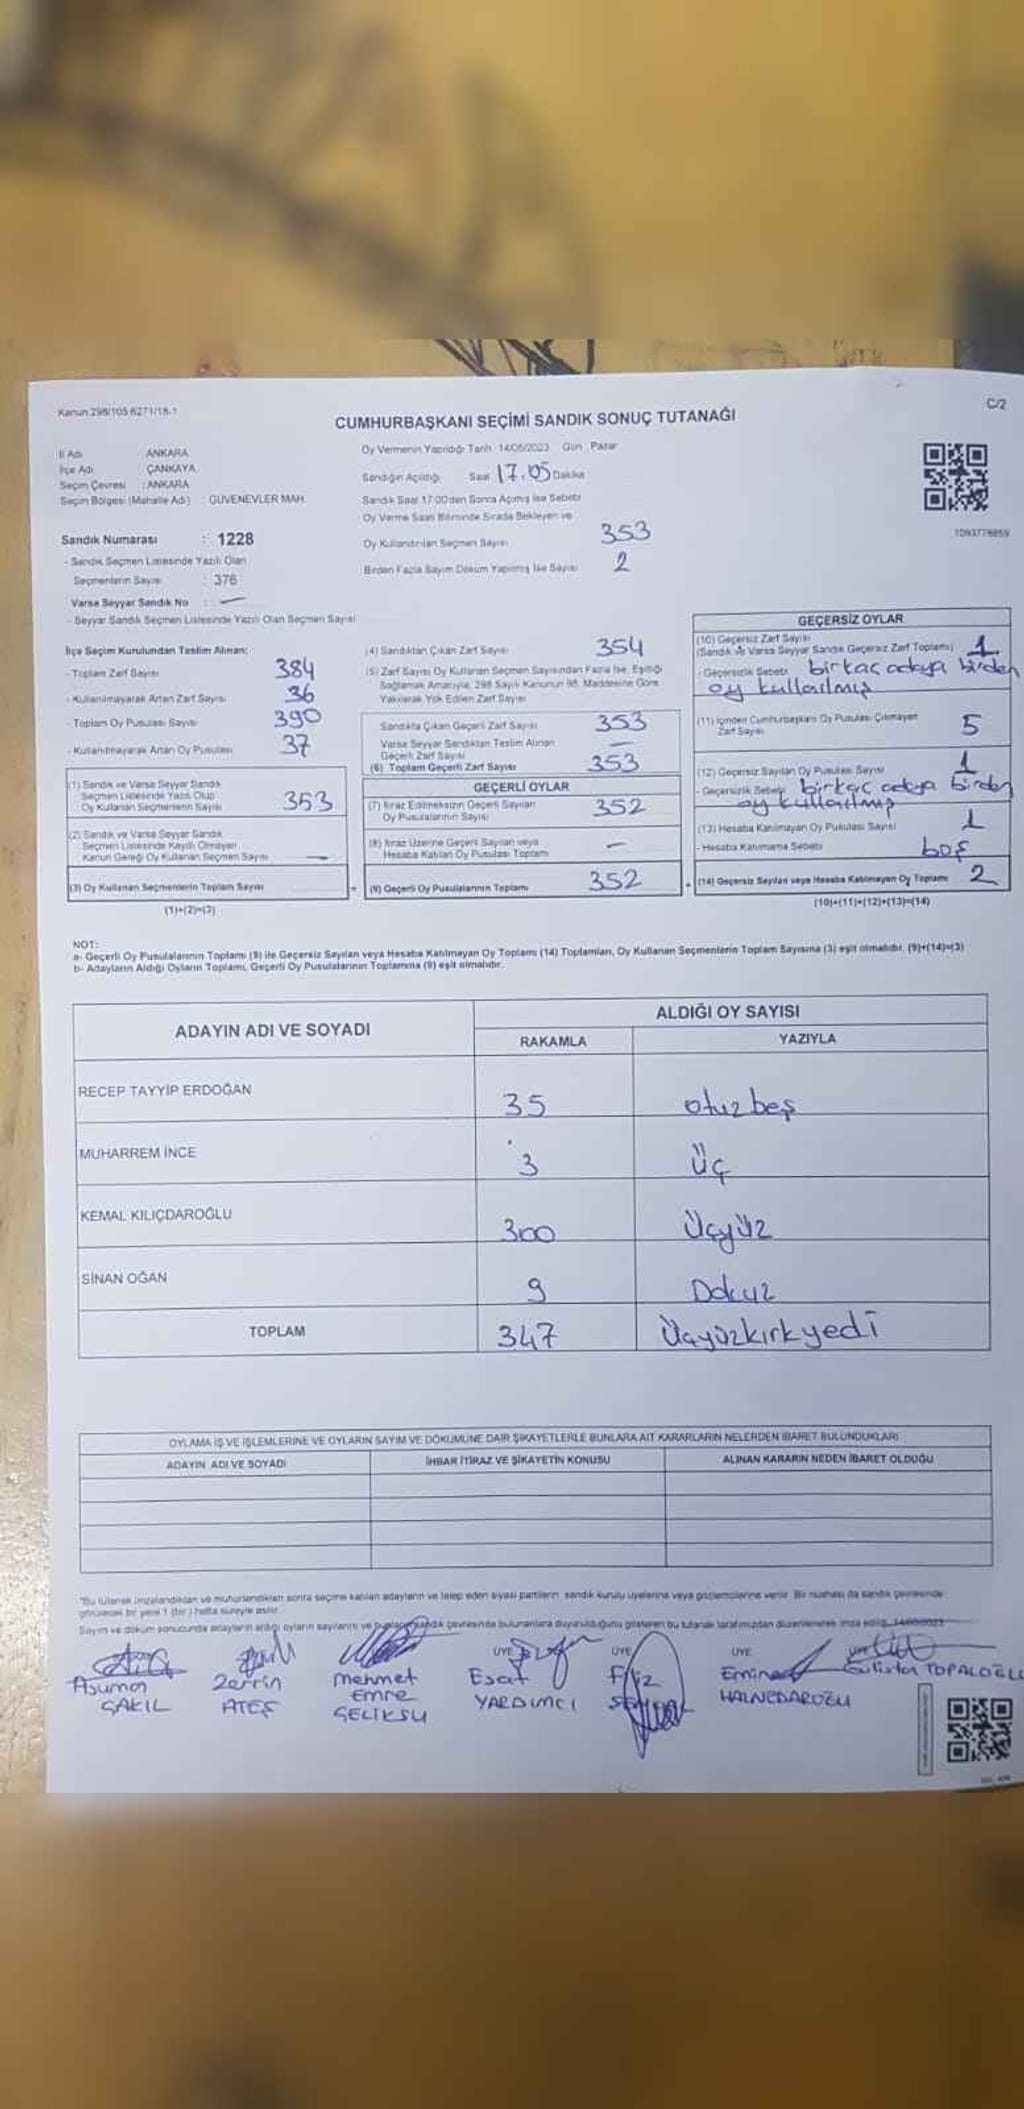 Kanun 298/105 6271/18-1
C/2
CUMHURBAŞKANI SEÇİMİ SANDIK SONUÇ TUTANAĞI
İl Adı ANKARA
İlçe Adı ÇANKAYA
Seçim Çevresi : ANKARA
Seçim Bölgesi (Mahalle Adı) : GÜVENEVLER MAH.
Oy Vermenin Yapıldığı Tarih 14/05/2023 Gün Pazar
Sandığın Açıldığı Saat 17.05 Dakika
Sandık Saat 17.00'den Sonra Açılmış İse Sebebi
Oy Verme Saati Bitiminde Sırada Bekleyen ve
Oy Kullandırılan Seçmen Sayısı 353
Birden Fazla Sayım Döküm Yapılmış İse Sayısı 2
Sandık Numarası : 1228
- Sandık Seçmen Listesinde Yazılı Olan
Seçmenlerin Sayısı : 376
Varsa Seyyar Sandık No : —
- Seyyar Sandık Seçmen Listesinde Yazılı Olan Seçmen Sayısı
İlçe Seçim Kurulundan Teslim Alınan:
- Toplam Zarf Sayısı 384
- Kullanılmayarak Artan Zarf Sayısı 36
- Toplam Oy Pusulası Sayısı 390
- Kullanılmayarak Artan Oy Pusulası 37
(1) Sandık ve Varsa Seyyar Sandık
Seçmen Listesinde Yazılı Olup
Oy Kullanan Seçmenlerin Sayısı 353
(2) Sandık ve Varsa Seyyar Sandık
Seçmen Listesinde Kayıtlı Olmayan
Kanun Gereği Oy Kullanan Seçmen Sayısı —
(3) Oy Kullanan Seçmenlerin Toplam Sayısı
(1)+(2)=(3)
(4) Sandıktan Çıkan Zarf Sayısı 354
(5) Zarf Sayısı Oy Kullanan Seçmen Sayısından Fazla İse, Eşitliği
Sağlamak Amacıyla, 298 Sayılı Kanunun 98. Maddesine Göre
Yakılarak Yok Edilen Zarf Sayısı
Sandıkta Çıkan Geçerli Zarf Sayısı 353
Varsa Seyyar Sandıktan Teslim Alınan
Geçerli Zarf Sayısı —
(6) Toplam Geçerli Zarf Sayısı 353
GEÇERLİ OYLAR
(7) İtiraz Edilmeksizin Geçerli Sayılan
Oy Pusulalarının Sayısı 352
(8) İtiraz Üzerine Geçerli Sayılan veya
Hesaba Katılan Oy Pusulası Toplamı —
(9) Geçerli Oy Pusulalarının Toplamı 352
GEÇERSİZ OYLAR
(10) Geçersiz Zarf Sayısı
(Sandık ve Varsa Seyyar Sandık Geçersiz Zarf Toplamı) 1
- Geçersizlik Sebebi birkaç adaya birden
oy kullanılmış
(11) İçinden Cumhurbaşkanı Oy Pusulası Çıkmayan
Zarf Sayısı 5
(12) Geçersiz Sayılan Oy Pusulası Sayısı 1
- Geçersizlik Sebebi birkaç adaya birden
oy kullanılmış
(13) Hesaba Katılmayan Oy Pusulası Sayısı 1
- Hesaba Katılmama Sebebi boş
(14) Geçersiz Sayılan veya Hesaba Katılmayan Oy Toplamı 2
(10)+(11)+(12)+(13)=(14)
NOT:
a- Geçerli Oy Pusulalarının Toplamı (9) ile Geçersiz Sayılan veya Hesaba Katılmayan Oy Toplamı (14) Toplamları, Oy Kullanan Seçmenlerin Toplam Sayısına (3) eşit olmalıdır. (9)+(14)=(3)
b- Adayların Aldığı Oyların Toplamı, Geçerli Oy Pusulalarının Toplamına (9) eşit olmalıdır.
ADAYIN ADI VE SOYADI
ALDIĞI OY SAYISI
RAKAMLA YAZIYLA
RECEP TAYYİP ERDOĞAN 35 otuzbeş
MUHARREM İNCE 3 Üç
KEMAL KILIÇDAROĞLU 300 Üçyüz
SİNAN OĞAN 9 Dokuz
TOPLAM 347 Üçyüzkırkyedi
OYLAMA İŞ VE İŞLEMLERİNE VE OYLARIN SAYIM VE DÖKÜMÜNE DAİR ŞİKAYETLERLE BUNLARA AİT KARARLARIN NELERDEN İBARET BULUNDUKLARI
ADAYIN ADI VE SOYADI İHBAR İTİRAZ VE ŞİKAYETİN KONUSU ALINAN KARARIN NEDEN İBARET OLDUĞU
"Bu tutanak imzalandıktan ve mühürlendikten sonra seçime katılan adayların ve talep eden siyasi partilerin sandık kurulu üyelerine veya gözlemcilerine verilir. Bir nüshası da sandık çevresinde
görülecek bir yere 1 (bir) hafta süreyle asılır.
ÜYE ÜYE ÜYE
Asuman Zerrin Mehmet Esat Filiz Emine Gülistan TOPALOĞLU
ÇAKIL ATEŞ Emre YARDIMCI HALNEDAROĞLU
ÇELİKSU